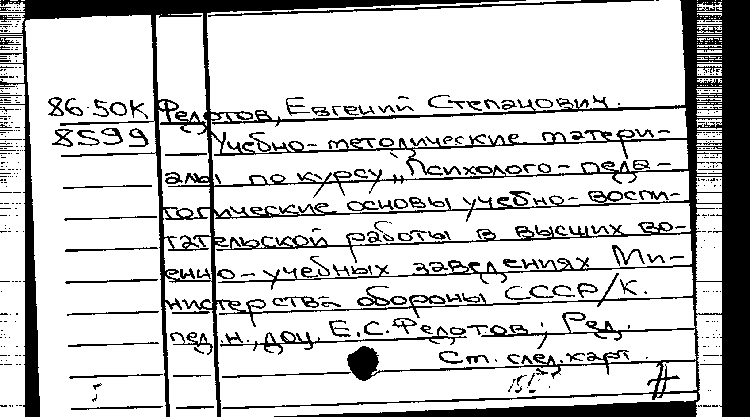 86.50К Федотов, Евгений Степанович.
8599 Учебно-методические матери-
алы по курсу „Психолого-педа-
гогические основы учебно-воспи-
тательской работы в высших во-
енно-учебных заведениях Ми-
нистерства обороны СССР/К.
пед.н., доц. Е.С.Федотов; Ред.
Ст. след.карт.